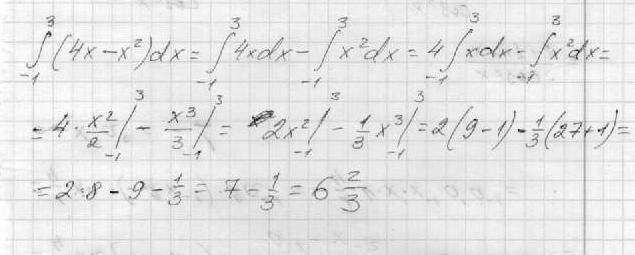 ∫₋₁³ (4x − x²)dx = ∫₋₁³ 4xdx − ∫₋₁³ x²dx = 4 ∫₋₁³ xdx − ∫₋₁³ x²dx =
= 4 · x²/2 |₋₁³ − x³/3 |₋₁³ = 2x² |₋₁³ − 1/3 x³ |₋₁³ = 2(9 − 1) − 1/3 (27 + 1) =
= 2 · 8 − 9 − 1/3 = 7 − 1/3 = 6 2/3